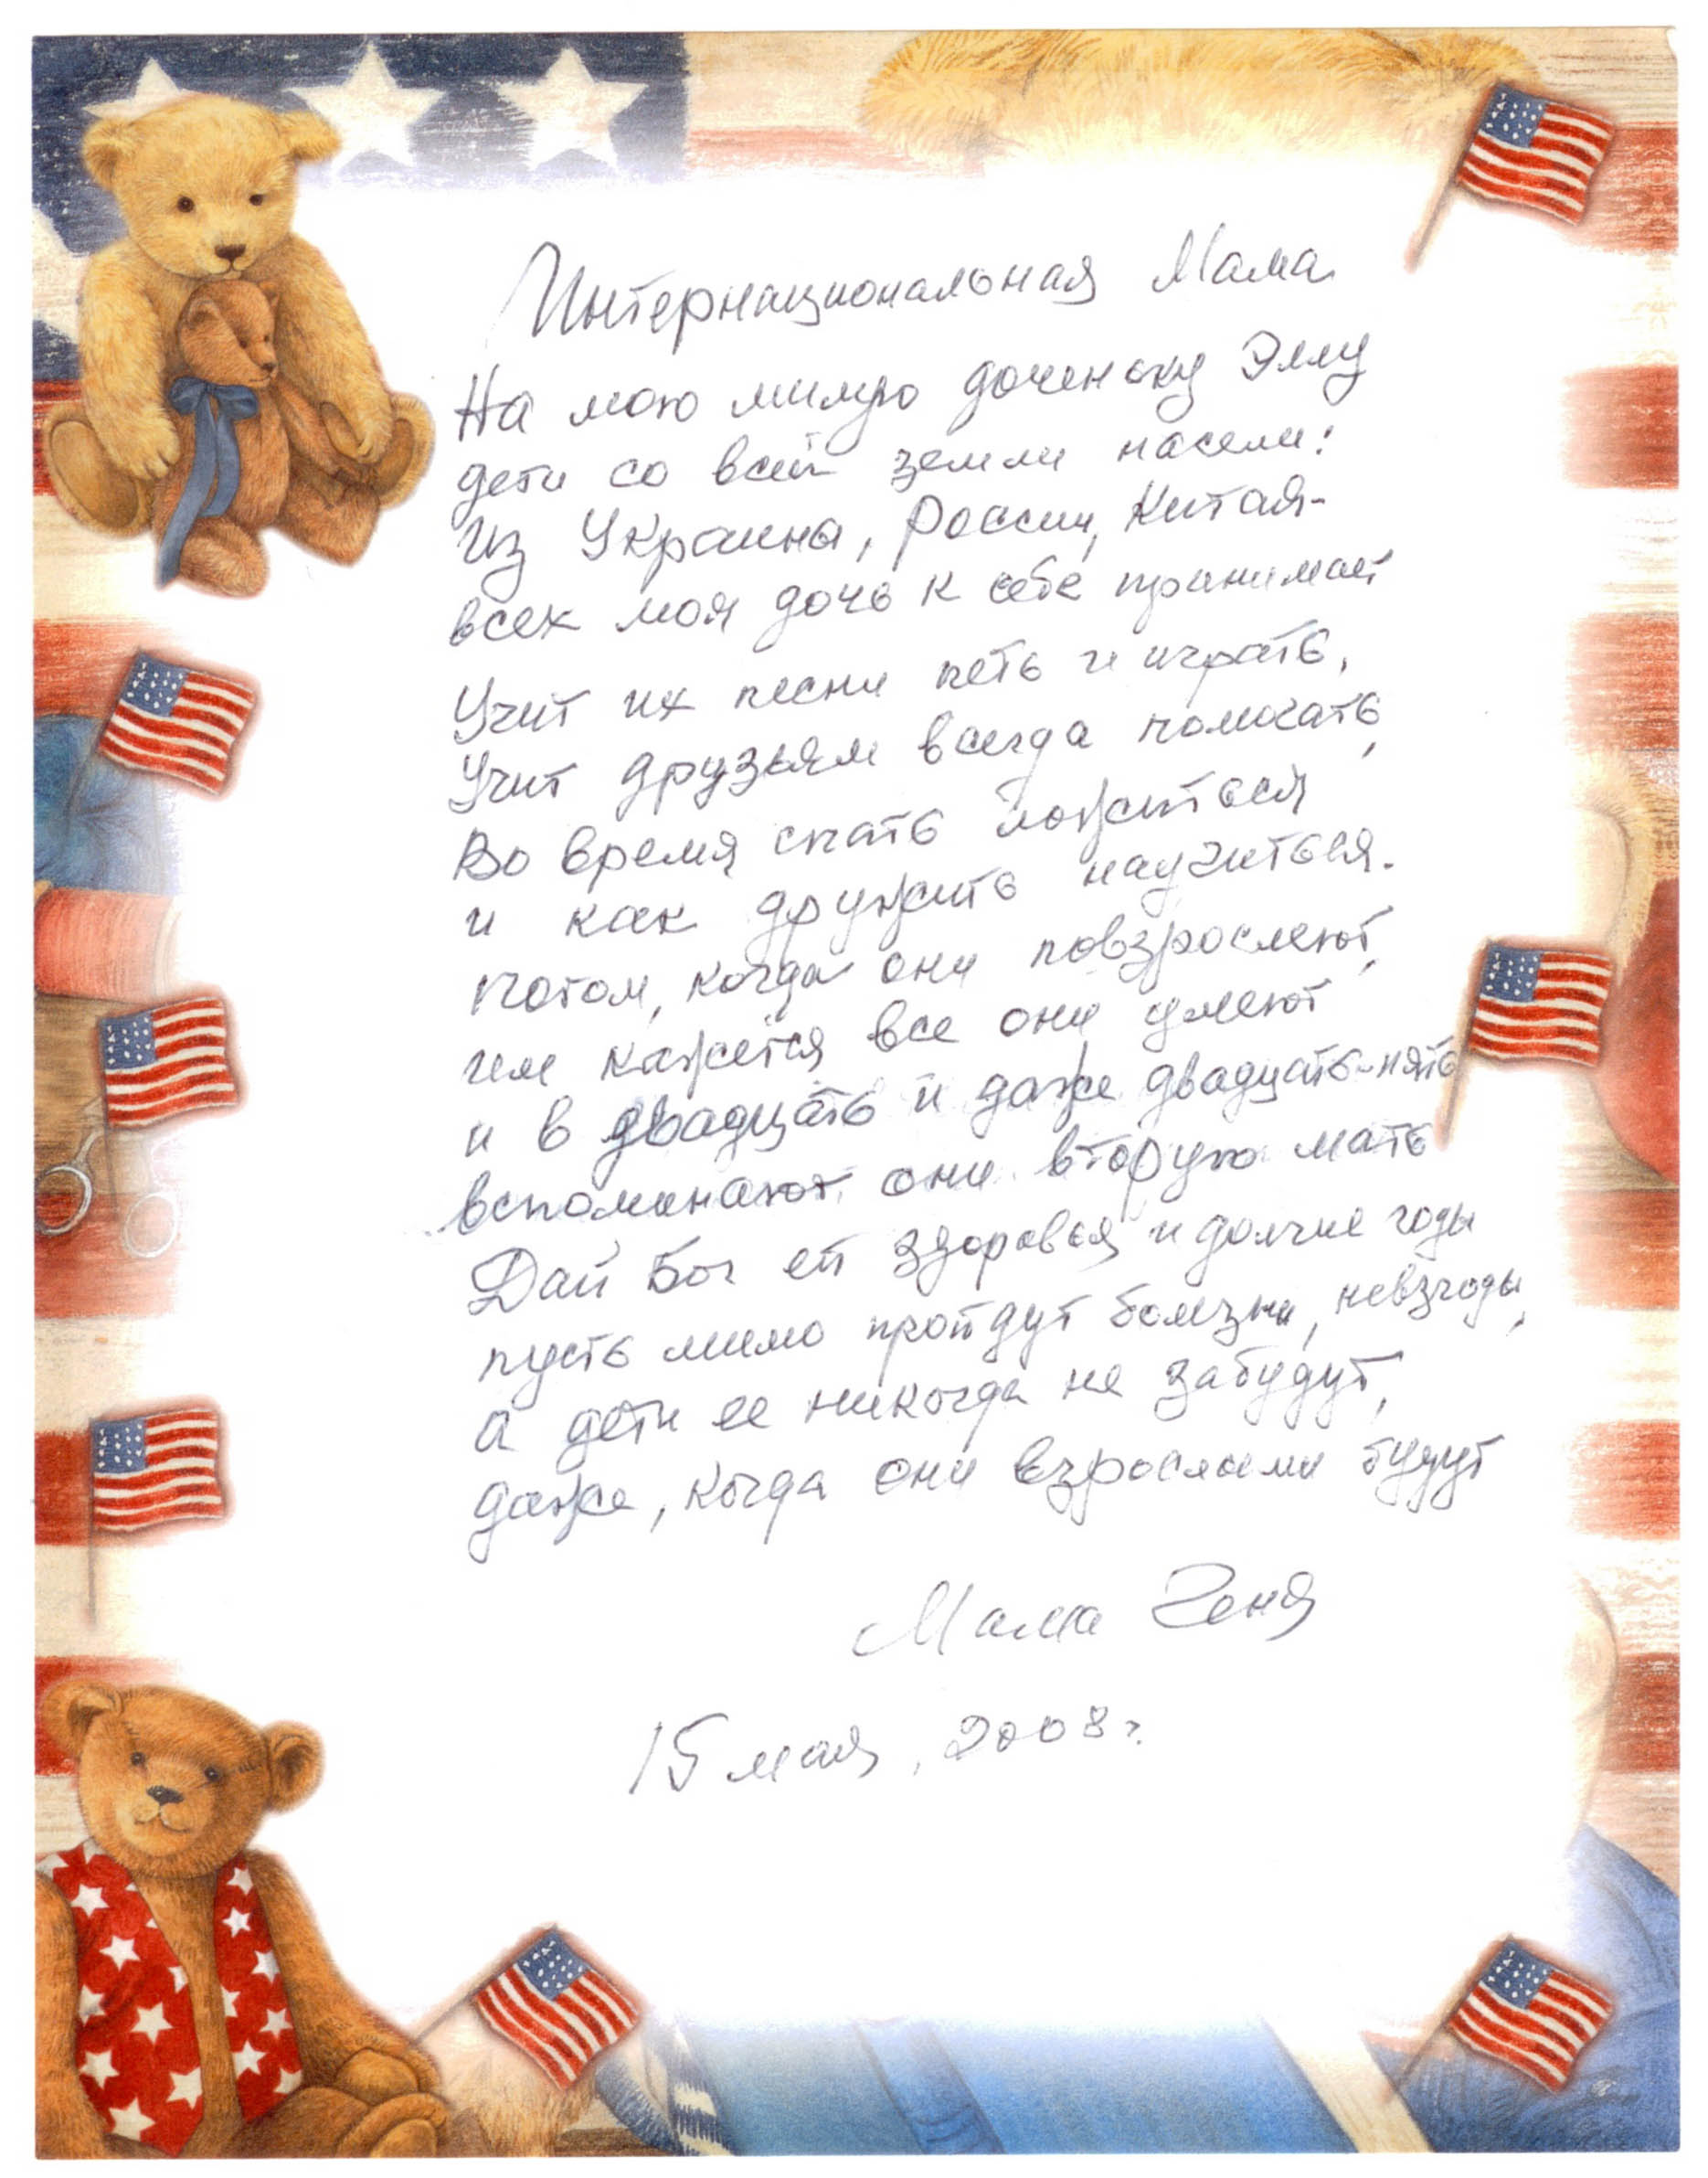 Интернациональная Мама
На мою милую доченьку Эллу
дети со всей земли насели:
Из Украины, России, Китая-
всех моя дочь к себе принимает
Учит их песни петь и играть,
Учит друзьям всегда помогать,
Во время спать ложиться
и как дружить научиться.
Потом, когда они повзрослеют,
им кажется все они умеют
и в двадцать и даже двадцать-пять
вспоминают они вторую мать
Дай Бог ей здоровья и долгие годы
пусть мимо пройдут болезни, невзгоды,
а дети ее никогда не забудут,
даже, когда они взрослыми будут
Мама Геня
15 мая, 2008 г.